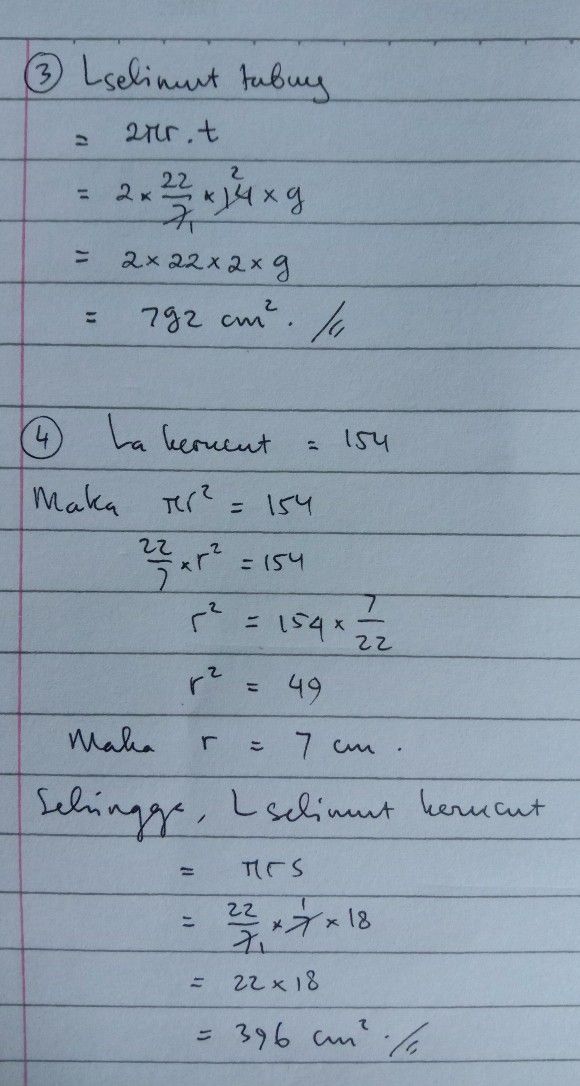 ③ L selimut tabung
= 2πr . t
= 2 × 22/7 1 × 14 2 × 9
= 2 × 22 × 2 × 9
= 792 cm². //
④ La kerucut = 154
Maka πr² = 154
22/7 × r² = 154
r² = 154 × 7/22
r² = 49
Maka r = 7 cm .
Sehingga, L selimut kerucut
= πrs
= 22/7 1 × 7 1 × 18
= 22 × 18
= 396 cm² . //